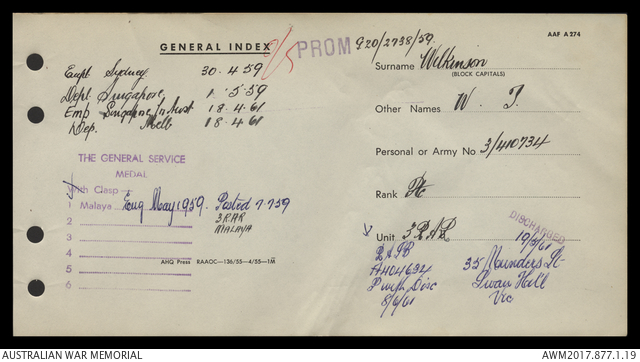 AAF A 274
GENERAL INDEX
PROM
G20/2738/59.
Surname Wilkinson
(BLOCK CAPITALS)
Empl Sydney 30.4.59
Depl. Singapore 1.5.59
Emp Singapore 18.4.61
Dep. Melb 18.4.61
Other Names W. J.
Personal or Army No 3/410734
Rank Pte
Unit 3 RAR
DISCHARGED
19/6/61
THE GENERAL SERVICE
MEDAL
With Clasp
1 Malaya Enq May 1959. Posted 7.7.59
2 3RAR
3 MALAYA
4
5
6
AHQ Press RAAOC—136/55—4/55—1M
A404634
Disc
8/6/61
35
Swan Hill
Vic
AUSTRALIAN WAR MEMORIAL
AWM2017.877.1.19